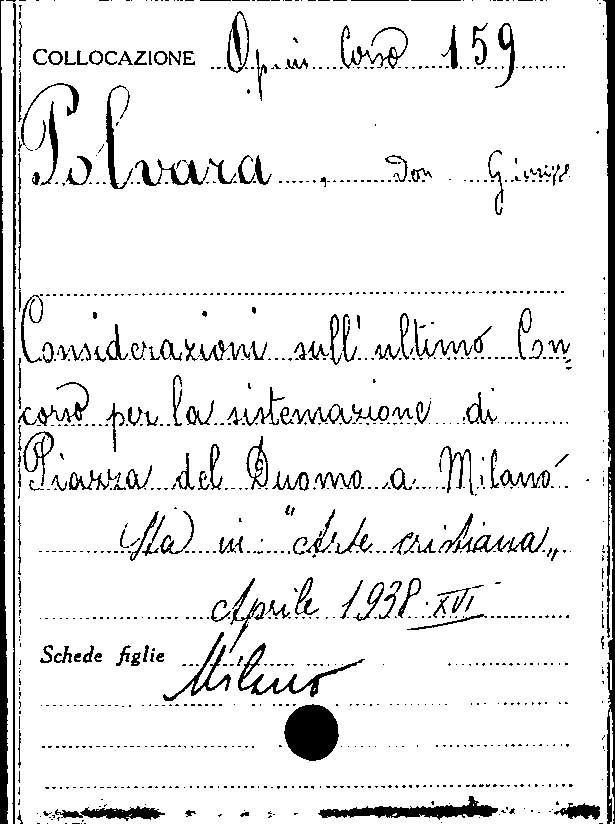 COLLOCAZIONE Op. in Corso 159
Polvara, Don Giuseppe
Considerazioni sull'ultimo Con=
corso per la sistemazione di
Piazza del Duomo a Milano
Sta in "Arte cristiana„
Aprile 1938·XVI
Schede figlie
Milano